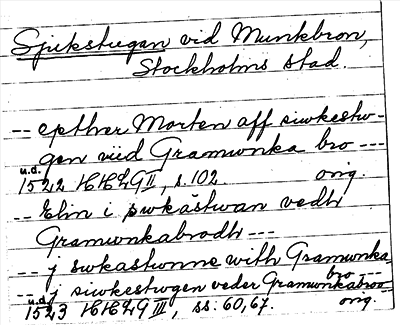 Sjukstugan vid Munkbron,
Stockholms stad.
-- epther Morten aff siwkestw-
gen viid Gramwnka bro ---
u.d.
1522 HHLG II, s. 102. orig.
-- Elin i swkästwan vedh
Gramwnkabrodh ---
-- j swkastwnne with Gramwnka
bro ---
-- j siwkestwgen veder Gramwnkabroo
u.d. orig.
1523 HHLG III, ss. 60, 67.